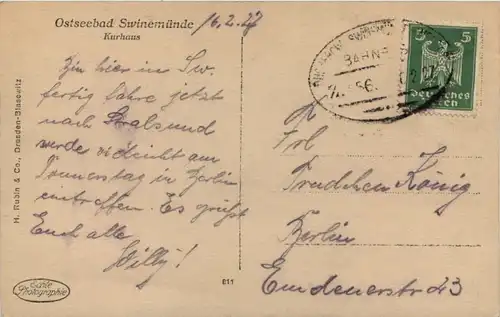 Ostseebad Swinemünde
Kurhaus
16.2.27
Bin hier in Sw.
fertig fahre jetzt
nach Stralsund
werde vielleicht am
Donnerstag in Berlin
eintreffen. Es grüßt
Euch alle
Willy!
H. Rubin & Co., Dresden-Blasewitz
Echte
Photographie
211
BAHNP
5
5
Deutsches
Reich
Frl
Trudchen König
Berlin
Emdenerstr 43